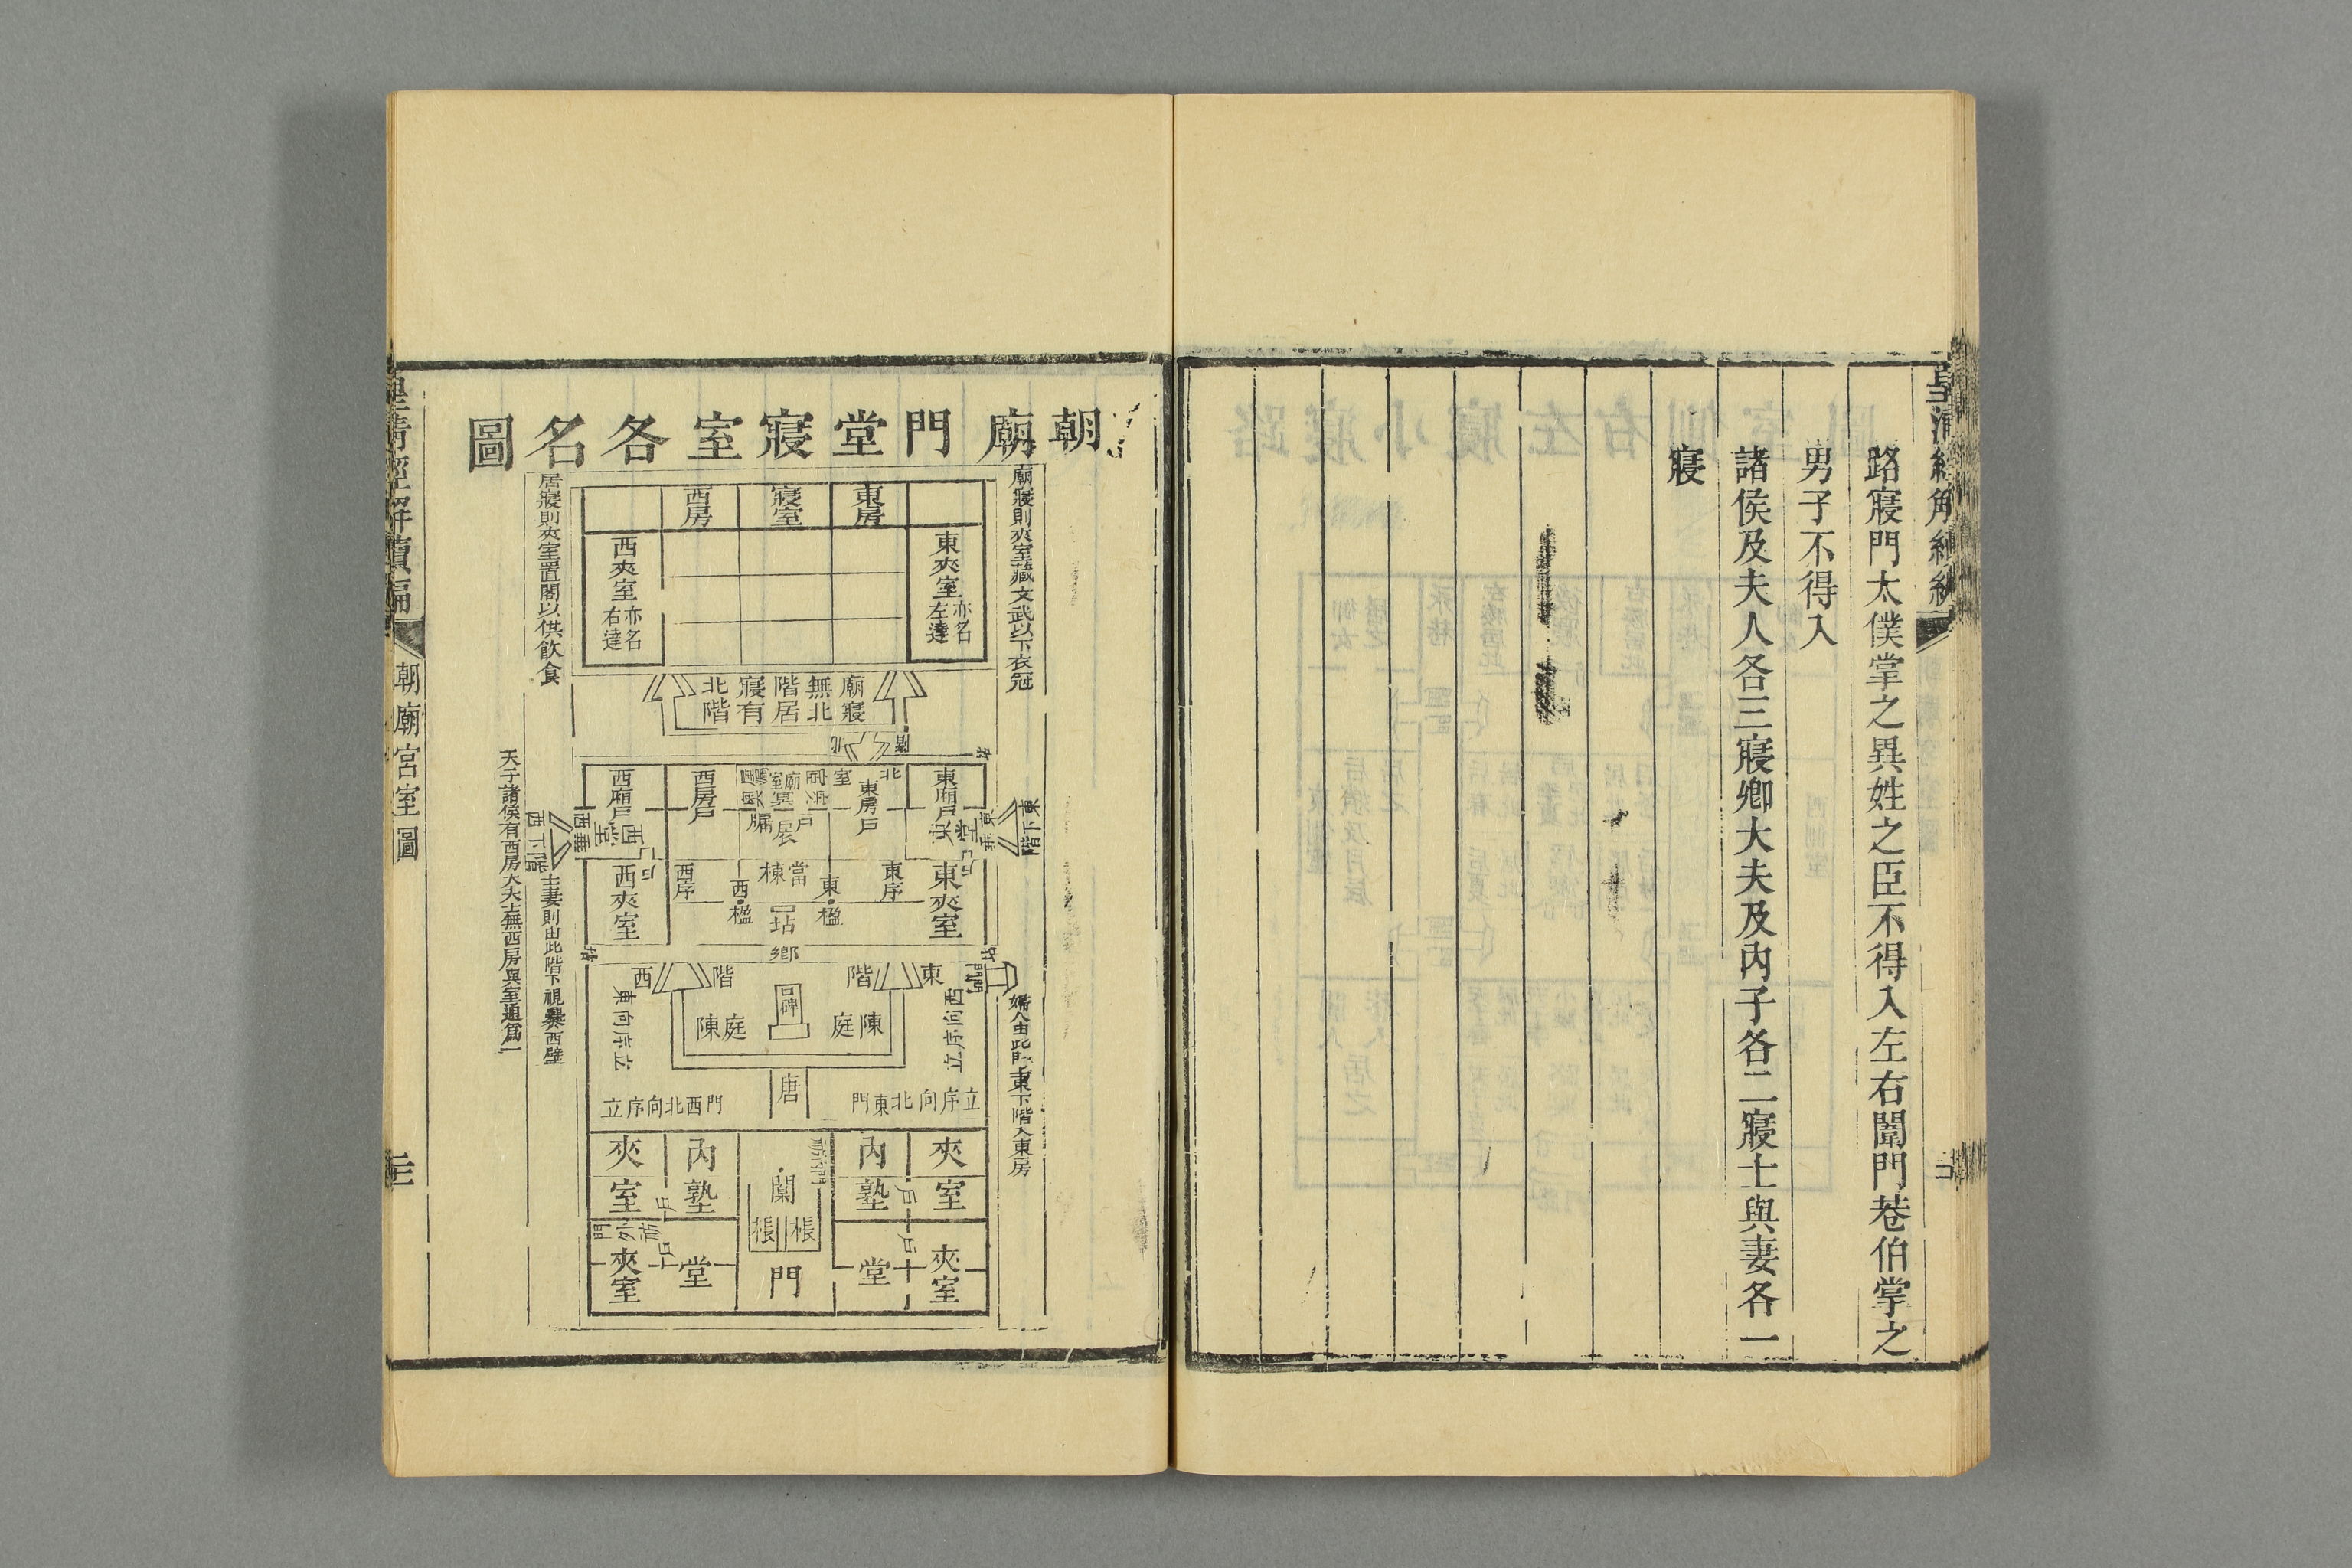 路寢門太僕掌之異姓之臣不得入左右闈門巷伯掌之
男子不得入
諸侯及夫人各三寢卿大夫及內子各二寢士與妻各一
寢
朝廟門堂寢室各名圖
廟寢則夾室藏文武以下衣冠
居寢則夾室置閣以供飲食
東房
寢室
西房
東夾室亦名左達
西夾室亦名右達
廟寢無北階居寢有北階
東廂戶
東房戶
北
室
廟室
戶
扆
牖
西房戶
西廂戶
東堂
東垂
東下階
西堂
西垂
西下階
東夾室
東序
東楹
當棟
西楹
西序
西夾室
坫
鄉
東階
西階
闈門
碑
陳庭
陳庭
西向序立
東向序立
唐
門東北向序立
門西北向序立
婦人由此門上東下階入東房
主妻則由此階下視爨西壁
天子諸侯有西房大夫士無西房與室通為一
夾室
內塾
闑
棖
棖
內塾
夾室
戶
戶
戶
戶
夾室
堂
門
堂
夾室
皇清經解續編
朝廟宮室圖